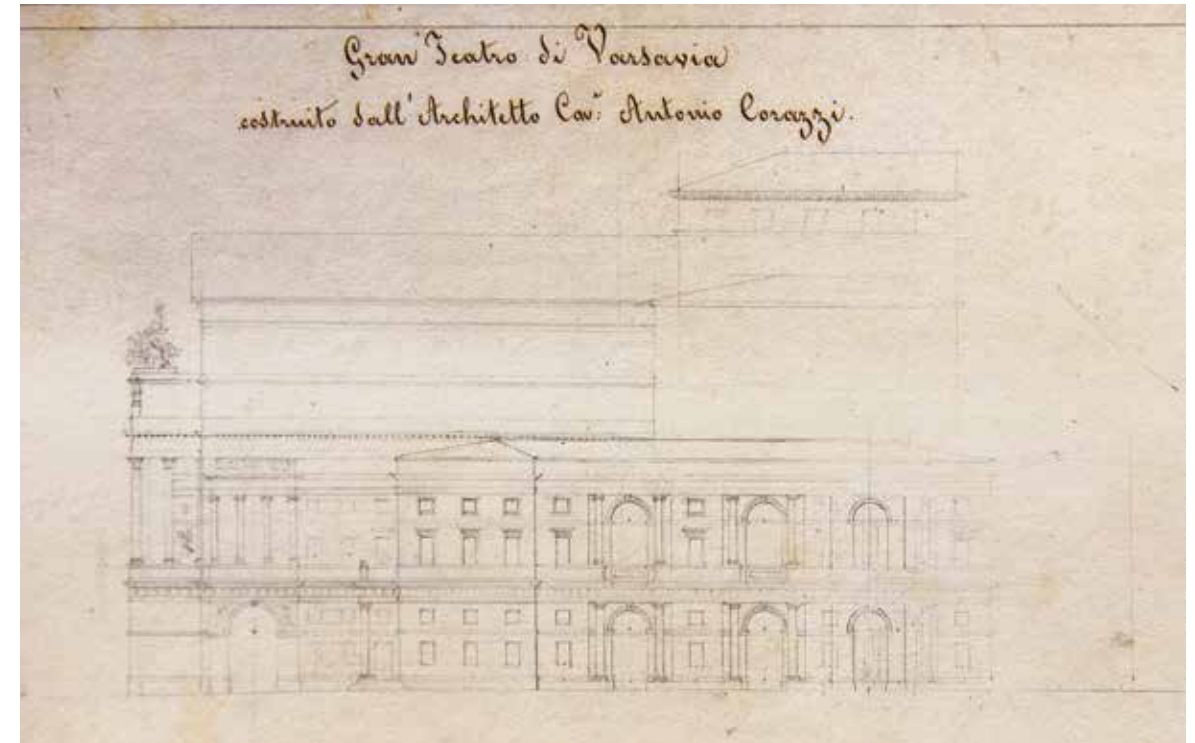 Gran Teatro di Varsavia
costruito dall' Architetto Cav: Antonio Corazzi.